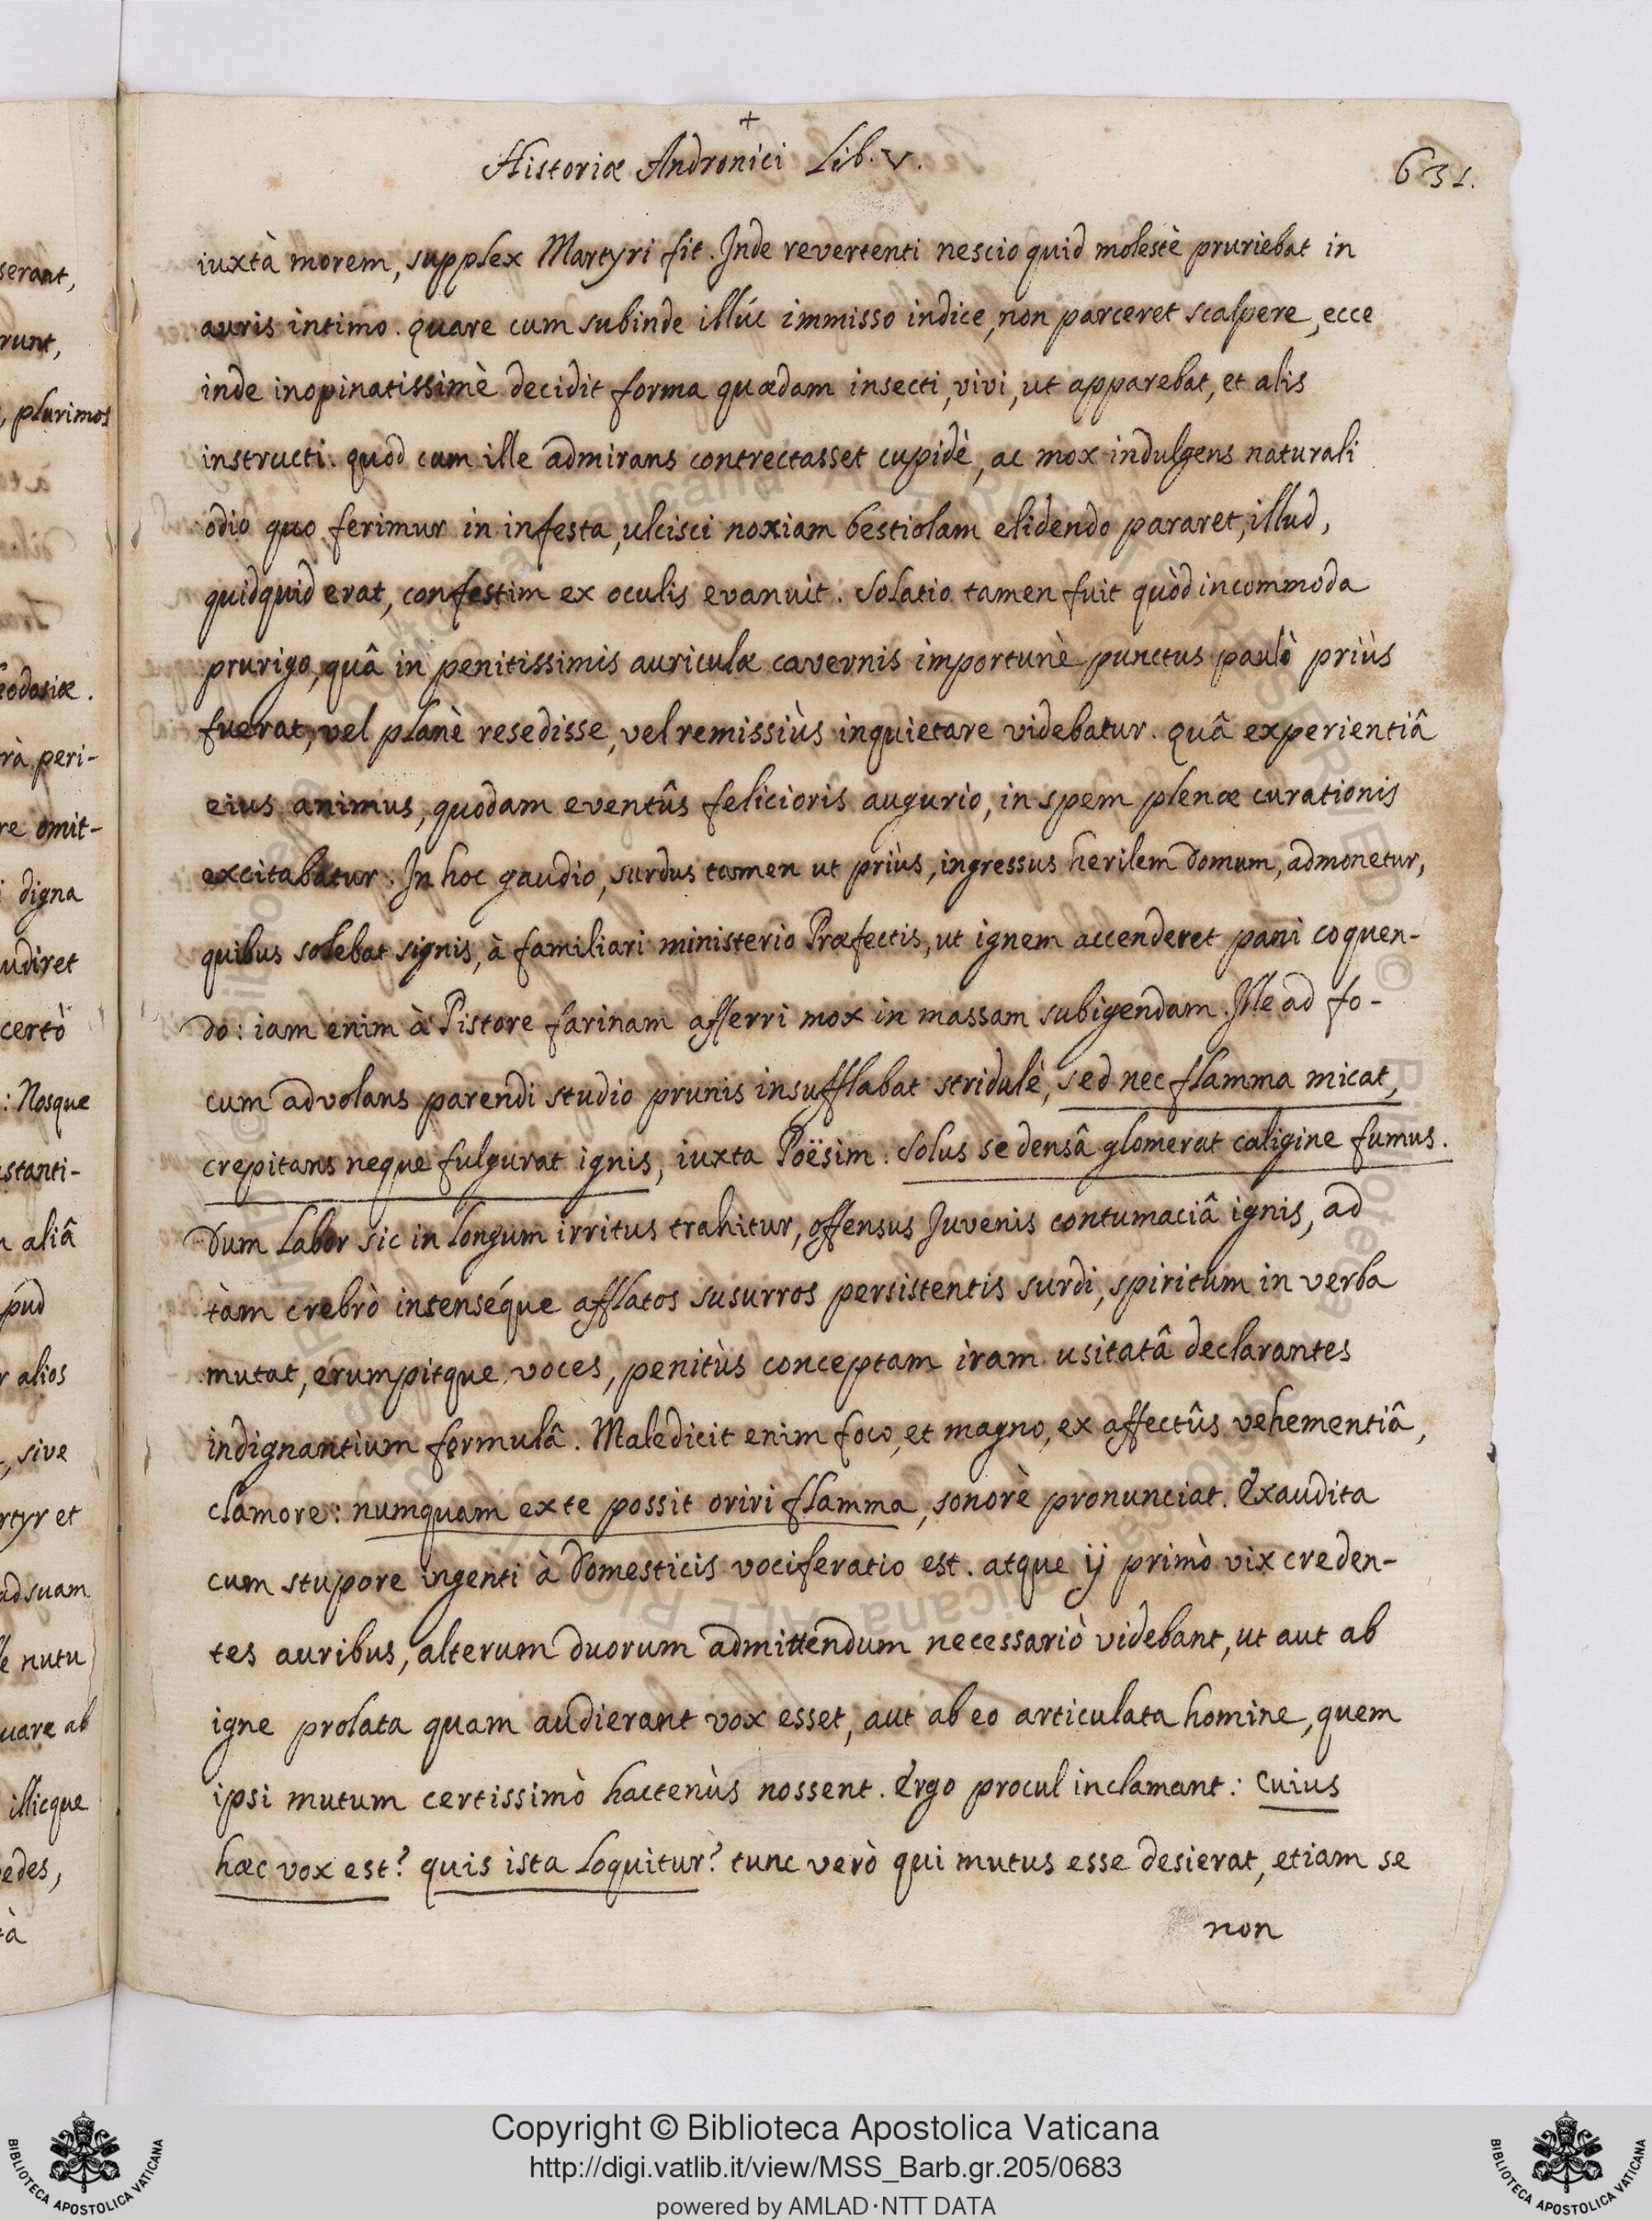 +
Historiæ Andronici Lib. V.
631.
iuxtà morem, supplex Martyri fit. Inde revertenti nescio quid molestè pruriebat in
auris intimo. quare cum subinde illúc immisso indice, non parceret scalpere, ecce
inde inopinatissimè decidit forma quædam insecti, vivi, ut apparebat, et alis
instructi. quod cum ille admirans contrectasset cupidè, ac mox indulgens naturali
odio quo ferimur in infesta, ulcisci noxiam bestiolam elidendo pararet, illud,
quidquid erat, confestim ex oculis evanuit. Solatio tamen fuit quòd incommoda
prurigo, quâ in penitissimis auriculæ cavernis importunè punctus paulò priùs
fuerat, vel planè resedisse, vel remissiùs inquietare videbatur. quâ experientiâ
eius animus, quodam eventûs felicioris augurio, in spem plenæ curationis
excitabatur. In hoc gaudio, surdus tamen ut priùs, ingressus herilem domum, admonetur,
quibus solebat signis, à familiari ministerio Præfectis, ut ignem accenderet pani coquen-
do: iam enim à Pistore farinam afferri mox in massam subigendam. Ille ad fo-
cum advolans parendi studio prunis insufflabat stridulè, sed nec flamma micat,
crepitans neque fulgurat ignis, iuxta Poësim. Solus se densâ glomerat caligine fumus.
Dum labor sic in longum irritus trahitur, offensus Juvenis contumaciâ ignis, ad
tàm crebrò intenséque afflatos susurros persistentis surdi, spiritum in verba
mutat, erumpitque voces, penitùs conceptam iram usitatâ declarantes
indignantium formulâ. Maledicit enim foco, et magno, ex affectûs vehementiâ,
clamore: numquam ex te possit oriri flamma, sonorè pronunciat. Exaudita
cum stupore ingenti à domesticis vociferatio est. atque ij primò vix creden-
tes auribus, alterum duorum admittendum necessariò videbant, ut aut ab
igne prolata quam audierant vox esset, aut ab eo articulata homine, quem
ipsi mutum certissimò hactenùs nossent. Ergo procul inclamant: Cuius
hæc vox est? quis ista loquitur? tunc verò qui mutus esse desierat, etiam se
non
serant,
runt,
, plurimos
eodosiæ.
rà peri-
re omit-
i digna
udiret
certò
: Nosque
stanti-
n aliâ
pud
r alios
, sive
rtyr et
ad suam
le nutu
uare ab
illicque
edes,
tà
Copyright © Biblioteca Apostolica Vaticana
http://digi.vatlib.it/view/MSS_Barb.gr.205/0683
powered by AMLAD·NTT DATA
BIBLIOTECA APOSTOLICA VATICANA
BIBLIOTECA APOSTOLICA VATICANA